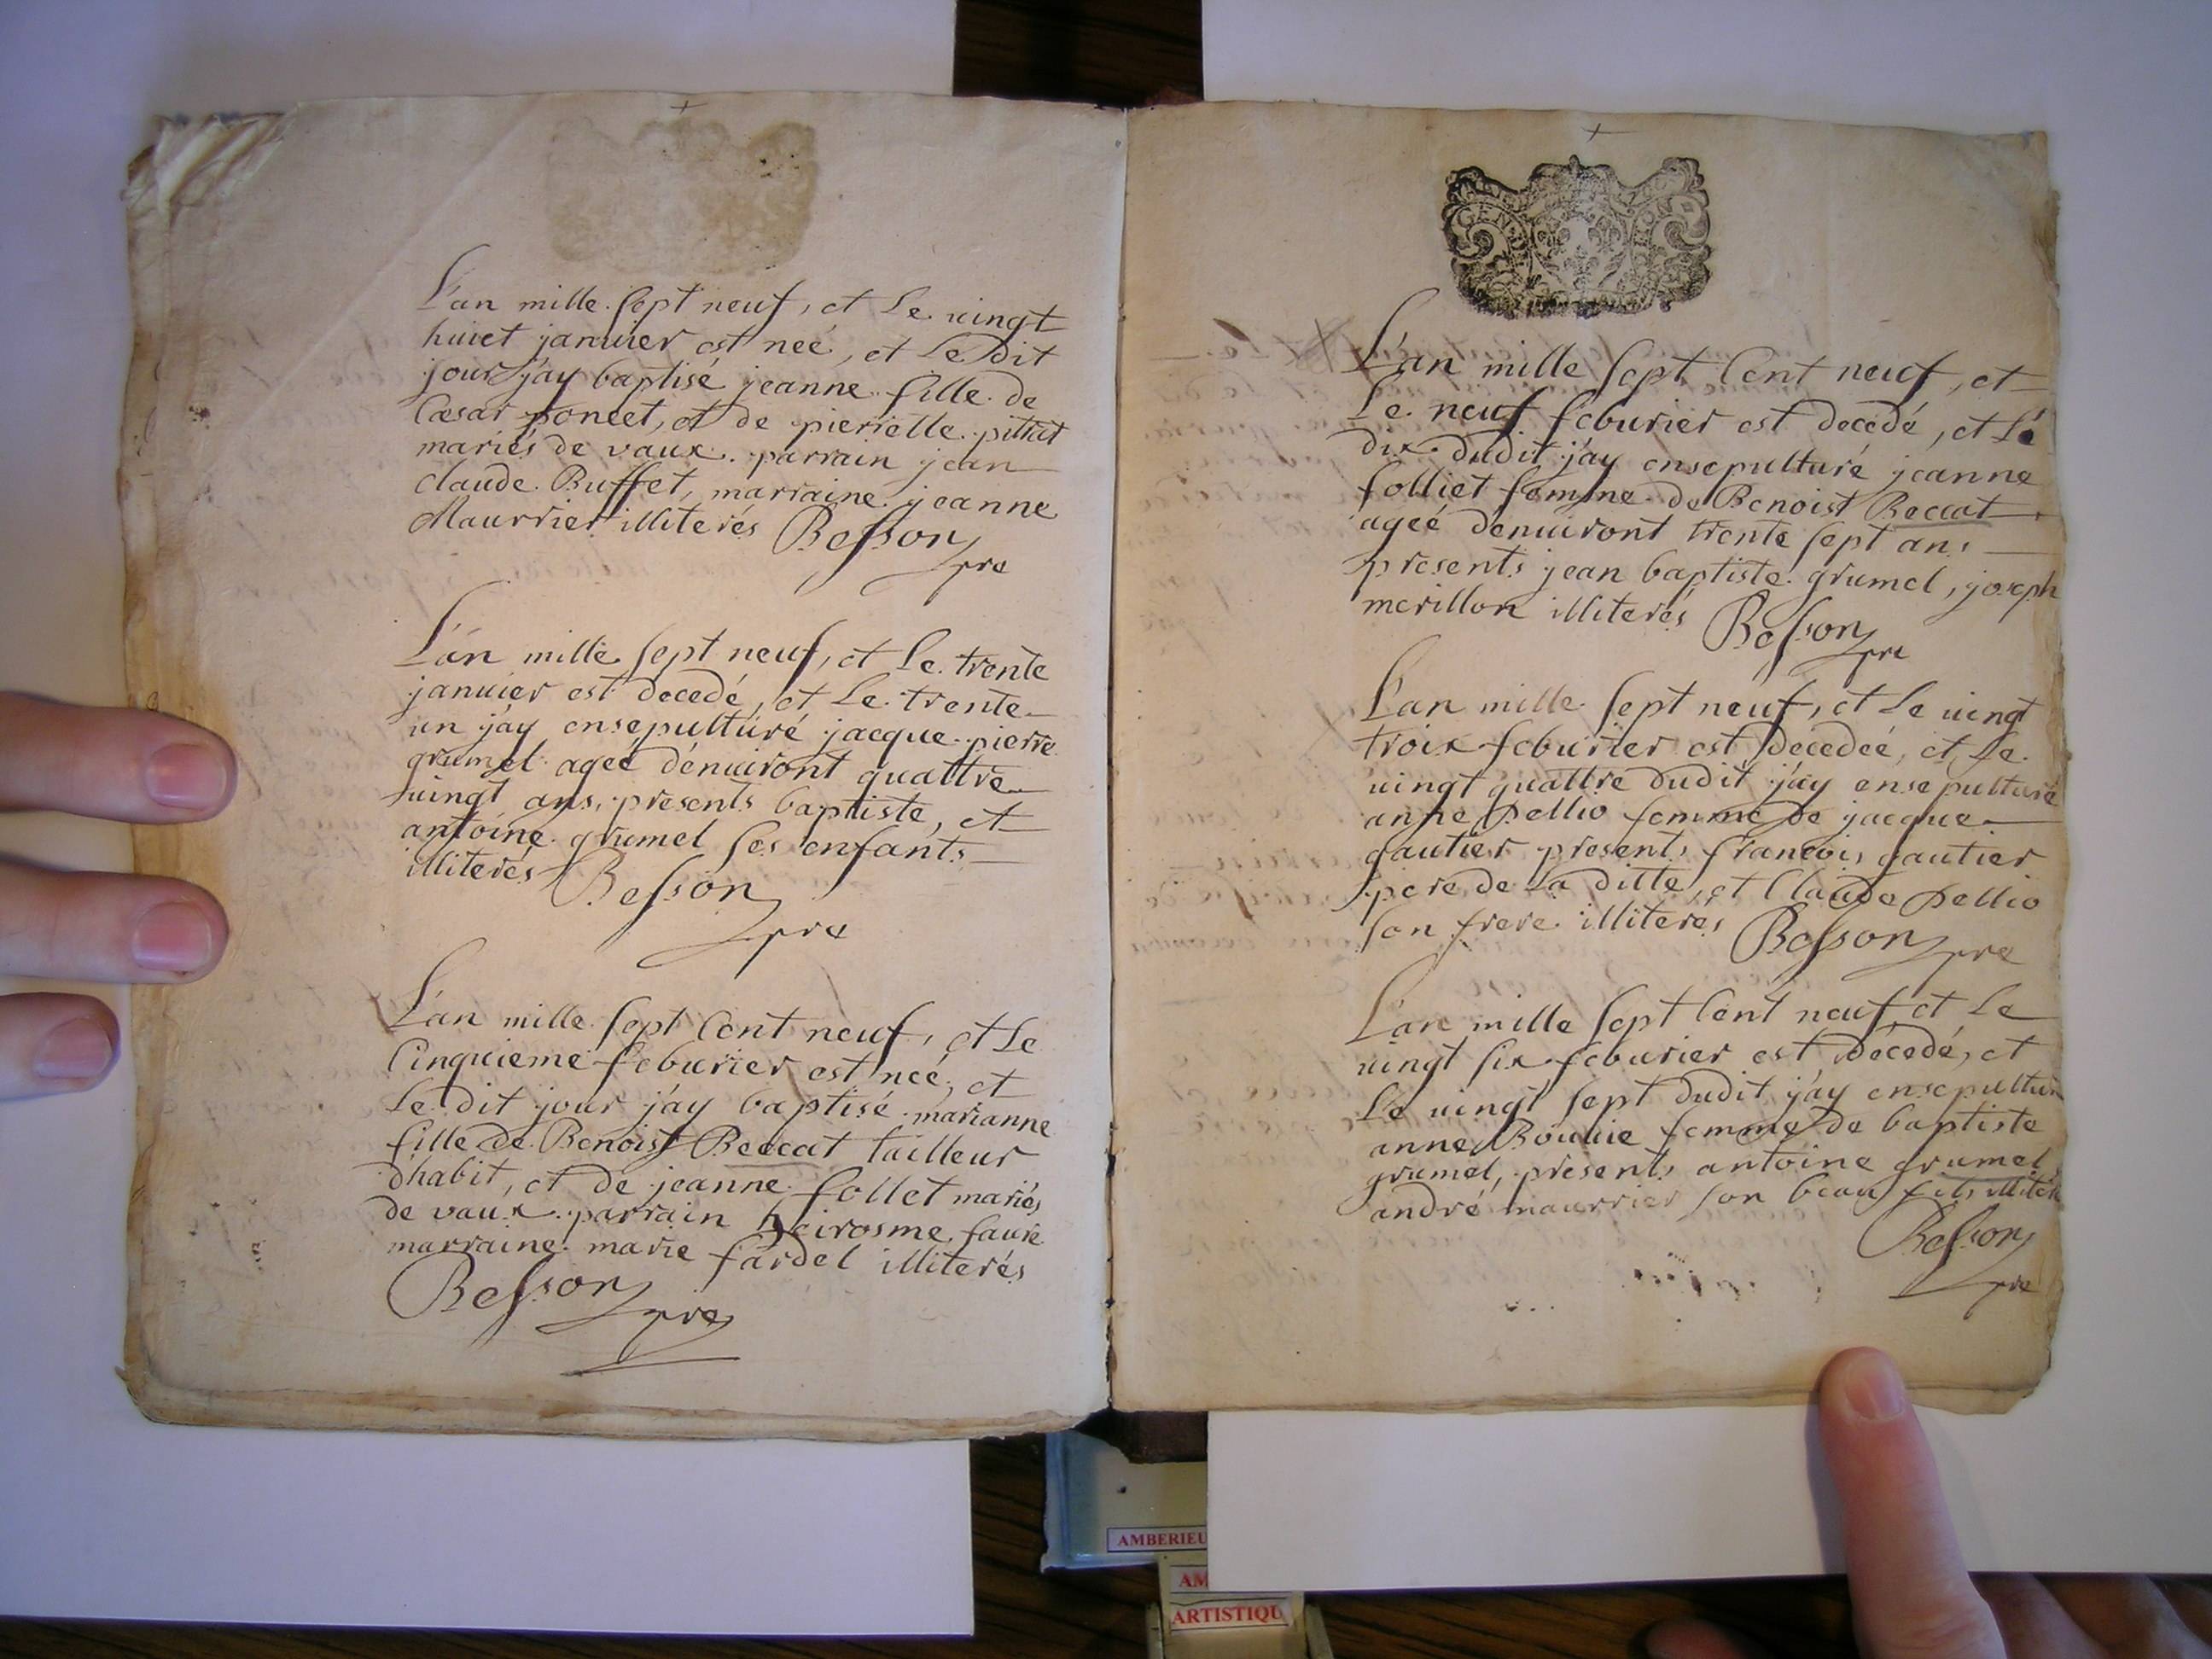 L'an mille sept neuf, et Le vingt
huict januier est neé, et Le dit
jour j'ay baptisé jeanne fille de
Cæsar poncet, et de pierrette pittut
mariés de vaux. parrain jean
claude Buffet, marraine jeanne
Maurrier illiterés Besson
pre
L'an mille sept neuf, et Le trente
januier est decedé, et Le trente
un j'ay ensepulturé jacque pierre
grumel ageé d'enuiront quattre
uingt ans, presents baptiste, et
antoine grumel ses enfants
illiterés Besson
pre
L'an mille sept Cent neuf, et Le
Cinquieme feburier est neé, et
Le dit jour j'ay baptisé marianne
fille de Benoist Beccat tailleur
d'habit, et de jeanne follet mariés
de vaux parrain heirosme faure
marraine marie fardel illiterés
Besson pre
GEN ON
L'an mille sept Cent neuf, et
Le neuf feburier est decedé, et Lé
dix dudit j'ay ensepulturé jeanne
folliet femme de Benoist Beccat
ageé d'enuiront trente sept ans
presents jean baptiste grumel, joseph
merillon illiterés Besson
pre
L'an mille sept neuf, et Le uingt
troix feburier est decedeé, et Le
uingt quattre dudit j'ay ensepulturé
anne pellio femme de jacque
gautier presents françois gautier
pere de La ditte, et Claude pellio
son frere illiterés Besson
pre
L'an mille sept Cent neuf, et Le
uingt six feburier est decedé, et
Le uingt sept dudit j'ay ensepultur
anne Bouuie femme de baptiste
grumel, presents antoine grumel
andré maurrier son beau fils illiter
Besson
pre
AMBERIEU
AM
ARTISTIQU